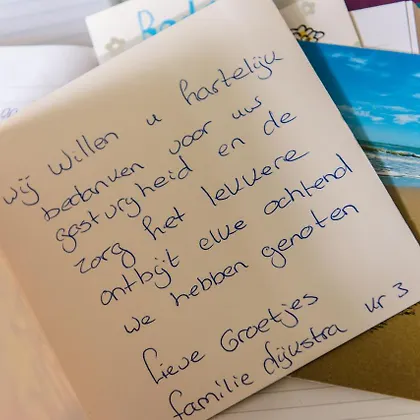 wij willen u hartelijk
bedanken voor uw
gastvrijheid en de
zorg het lekkere
ontbijt elke ochtend
we hebben genoten
Lieve Groetjes
familie dijkstra kr 3